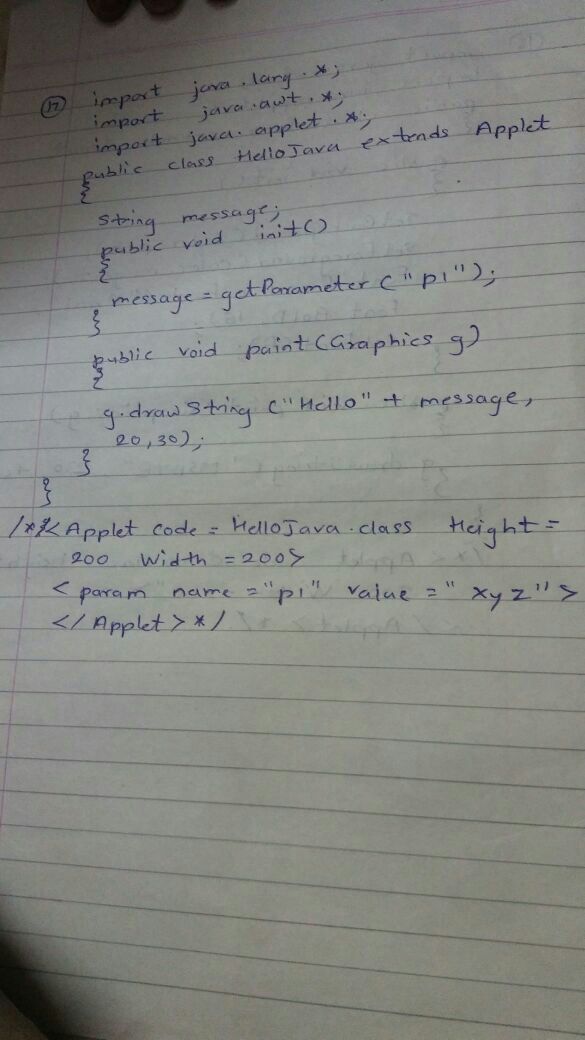 17 import java.lang.*;
import java.awt.*;
import java.applet.*;
public class HelloJava extends Applet
{
String message;
public void init()
{
message = getParameter ("p1");
}
public void paint(Graphics g)
{
g.drawString ("Hello" + message,
20,30);
}
}
/*<Applet code = HelloJava.class Height =
200 Width = 200>
<param name = "p1" value = "xyz">
</Applet>*/